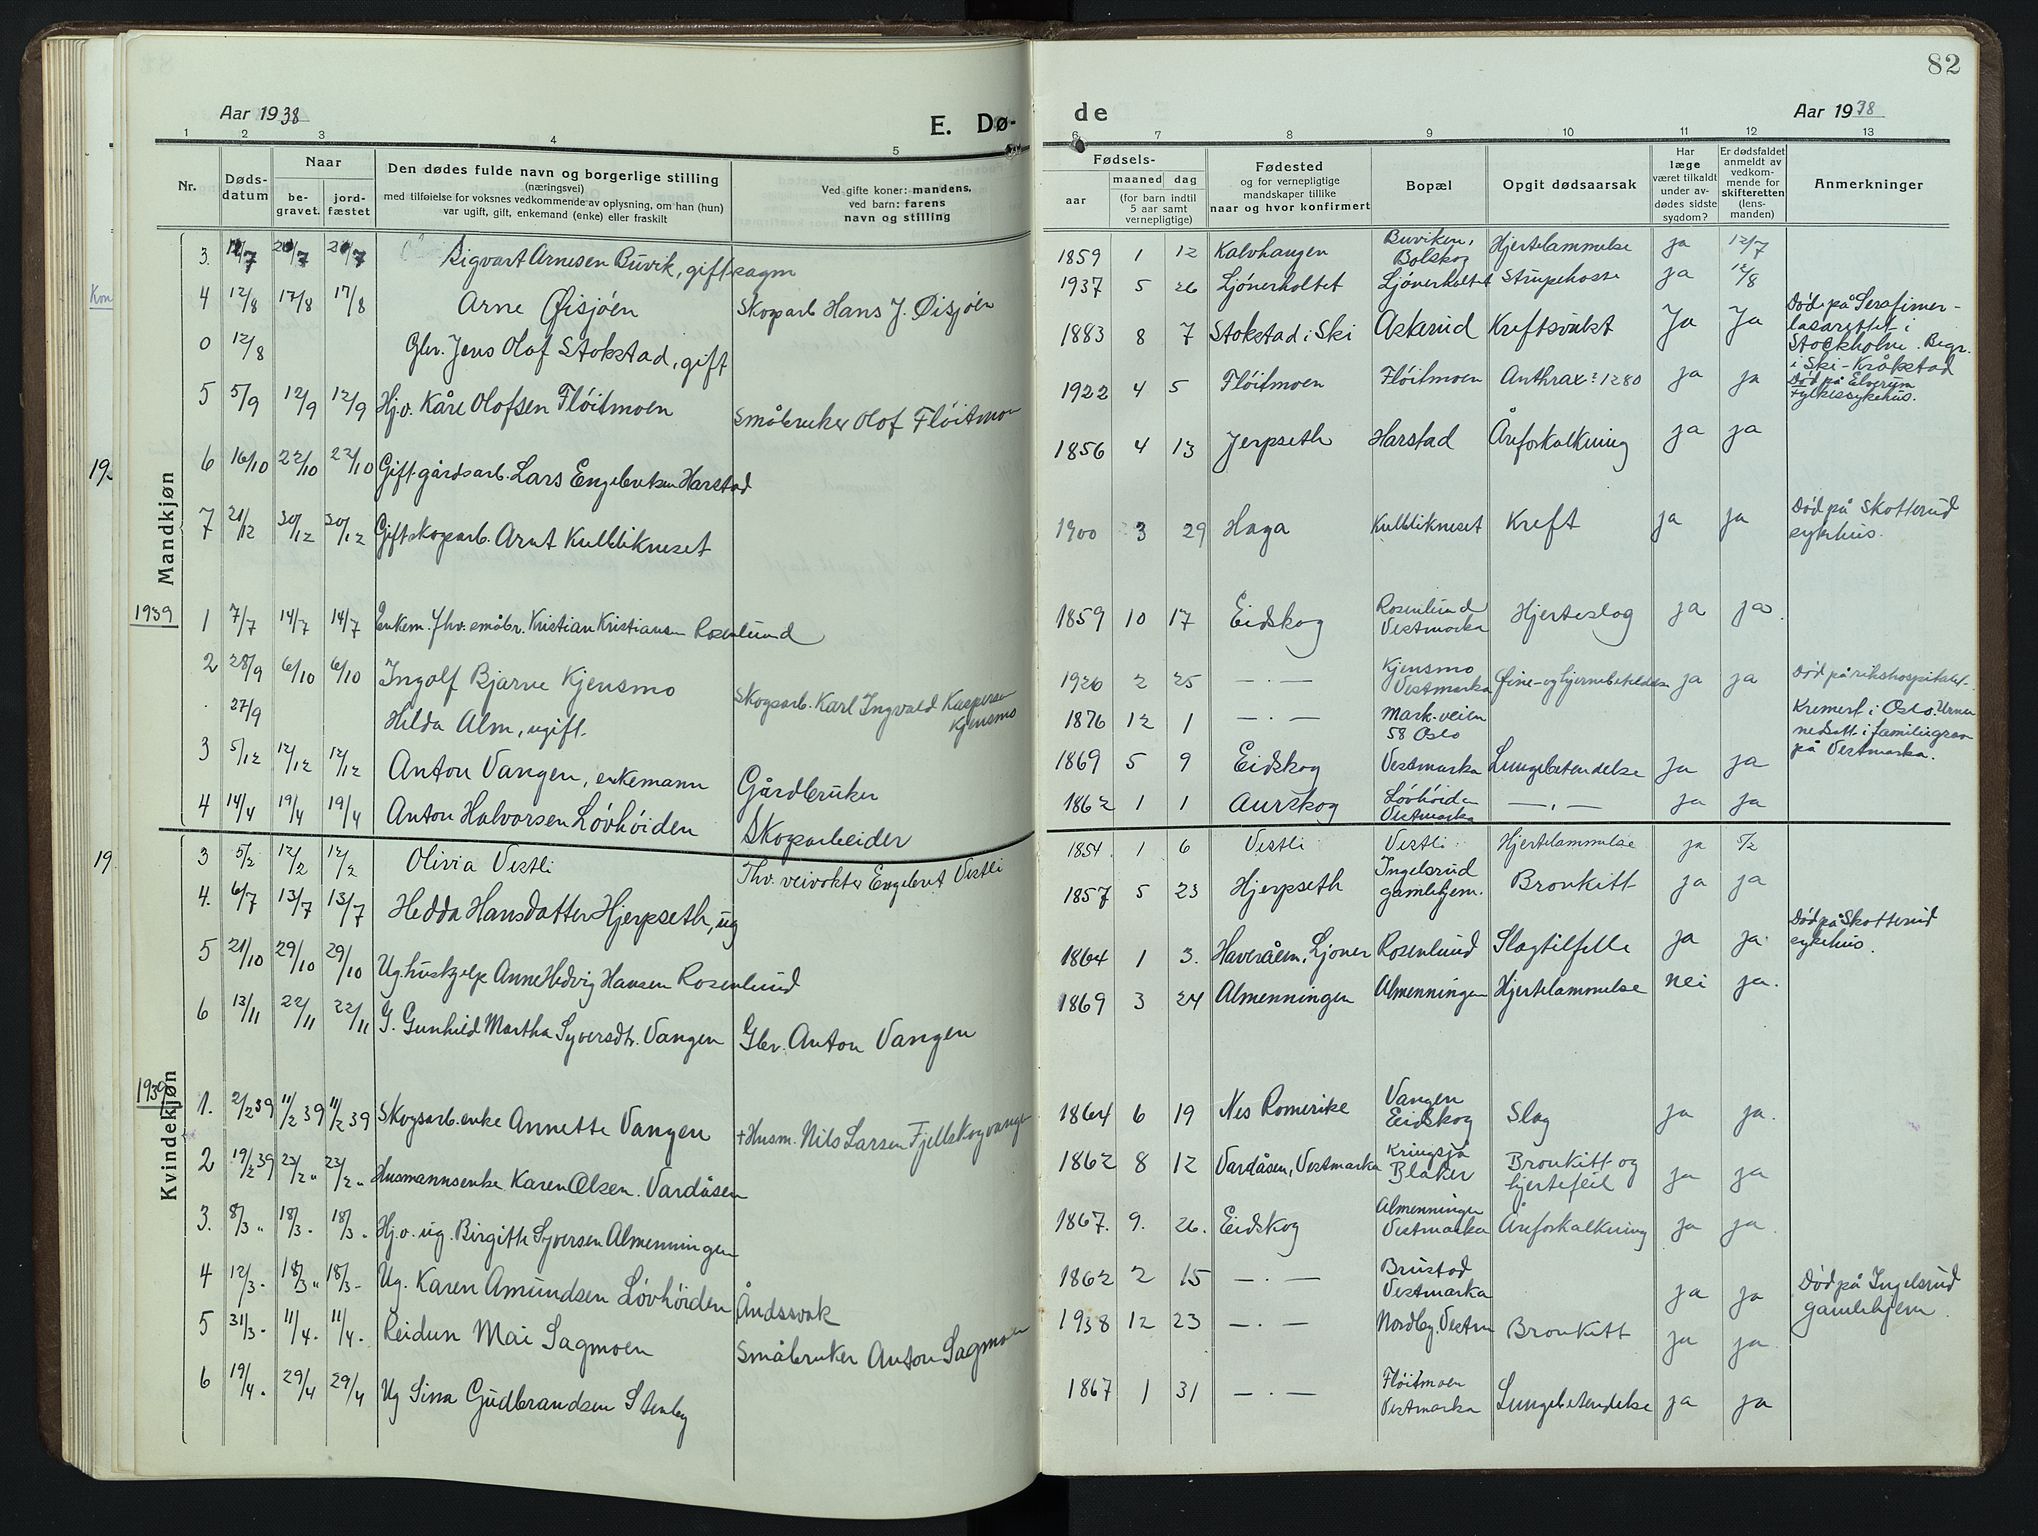 82
Aar 1938
E. Dø-
de
Aar 1938
1 2 3 4 5 6 7 8 9 10 11 12 13
Nr.
Døds-
datum
Naar
be-
gravet.
jord-
fæstet
Den dødes fulde navn og borgerlige stilling
(næringsvei)
med tilføielse for voksnes vedkommende av oplysning, om han (hun)
var ugift, gift, enkemand (enke) eller fraskilt
Ved gifte koner: mandens,
ved barn: farens
navn og stilling
Fødsels-
aar
maaned
dag
(for barn indtil
5 aar samt
vernepligtige)
Fødested
og for vernepligtige
mandskaper tillike
naar og hvor konfirmert
Bopæl
Opgit dødsaarsak
Har
læge
været tilkaldt
under av-
dødes sidste
sygdom?
Er dødsfaldet
anmeldt av
vedkom-
mende for
skifteretten
(lens-
manden)
Anmerkninger
Mandkjøn
3. 12/7 20/7 20/7 Sigvart Arnesen Buvik, gift sagm 1859 1 12 Kalvhaugen Buviken, Bolskog Hjertelammelse ja 12/7
4 12/8 17/8 17/8 Arne Øisjøen Skogarb Hans J. Øisjøen 1937 5 26 Ljønerholtet Ljønerholtet Strupehoste ja 12/8
0 12/8 Gbr. Jens Olaf Stokstad, gift 1883 8 7 Stokstad i Ski Asterud Kreftsvulst Ja Ja Død på Serafimer-
lasarettet i
Stockholm. Begr.
i Ski-Kråkstad
5 5/9 12/9 12/9 Hj.v. Kåre Olofsen Fløitmoen Småbruker Olof Fløitmoen 1922 4 5 Fløitmoen Fløitmoen Anthrax? 1280 ja ja Død på Elverum
fylkessykehus.
6 16/10 22/10 22/10 Gift gårdsarb. Lars Engebretsen Harstad 1856 4 13 Jerpseth Harstad Åreforkalkning ja ja
7 21/12 30/12 30/12 Gift skogarb. Arnt Kulblikneset 1900 3 29 Haga Kulblikneset Kreft ja ja Død på Skotterud
sykehus.
1939
1 7/7 14/7 14/7 Enkem. fhv. småbr. Kristian Kristiansen Rosenlund 1859 10 17 Eidskog Rosenlund Vestmarka Hjerteslag ja ja.
2 28/9 6/10 6/10 Ingolf Bjarne Kjensmo Skogsarb. Karl Ingvald Kaspersen Kjensmo 1920 2 25 — . — Kjensmo Vestmarka Øine- og hjernebetendelse ja ja Død på rikshospitalet.
27/9 Hilda Alm, ugift. 1876 12 1 — . — Mark-veien 58 Oslo Kremert i Oslo. Urnen
nedsatt i familiegrav
på Vestmarka.
3 5/12 12/12 12/12 Anton Vangen, enkemann Gårdbruker 1869 5 9 Eidskog Vestmarka Lungebetendelse ja ja
4 14/4 19/4 19/4 Anton Halvorsen Løvhøiden Skogarbeider 1862 1 1 Aurskog Løvhøiden Vestmarka — , — ja ja
Kvindekjøn
3 5/2 12/2 12/2 Olivia Vestli Fhv. veivokter Engebret Vestli 1854. 1 6 Vestli Vestli Hjertelammelse ja 5/2
4. 6/7 13/7 13/7 Hedda Hansdatter Hjerpseth, ug 1857 5 23 Hjerpseth Ingelsrud gamlehjem. Bronkitt ja ja
5 21/10 29/10 29/10 Ug. huskjelp Anne Hedvig Hansen Rosenlund 1864 1 3. Haveråen, Ljöner Rosenlund Slagtilfelle ja ja. Død på Skotterud
sykehus.
6 13/11 22/11 22/11 G. Gunhild Martha Syversdtr. Vangen Gbr. Anton Vangen 1869 3 24 Almenningen Almenningen Hjertelammelse nei ja.
1939
1. 2/2 39 11/2 39 11/2 39 Skogsarb. enke Annette Vangen + Husm. Nils Larsen Fjellskogvangen 1864 6 19 Nes Romerike Vangen Eidskog Slag ja ja.
2 19/2 39 23/2 „ 23/2 „ Husmannsenke Karen Olsen. Vardåsen 1862 8 12 Vardåsen, Vestmarka Kringsjå Blaker Bronkitt og hjertefeil ja ja
3. 8/3 „ 18/3 . 18/3 . Hj.v. ug. Birgitte Syversen Almenningen 1867. 9. 26. Eidskog Almenningen Vestmarka Åreforkalkning ja ja.
4 12/3 . 18/3 „ 18/3 - Ug. Karen Amundsen Løvhøiden Åndssvak 1862 2 15 — . — Brustad Vestmarka ja ja Død på Ingelsrud
gamlehjem.
5 31/3 . 11/4 . 11/4 . Reidun Mai Sagmoen Småbruker Anton Sagmoen 1938 12 23 — . — Nordby. Vestm Bronkitt ja ja.
6 19/4 . 29/4 29/4 Ug Sina Gudbrandsen Stenby 1867 1 31 — . — Fløitmoen Vestmarka Lungebetendelse ja ja
Kon
19.
19.